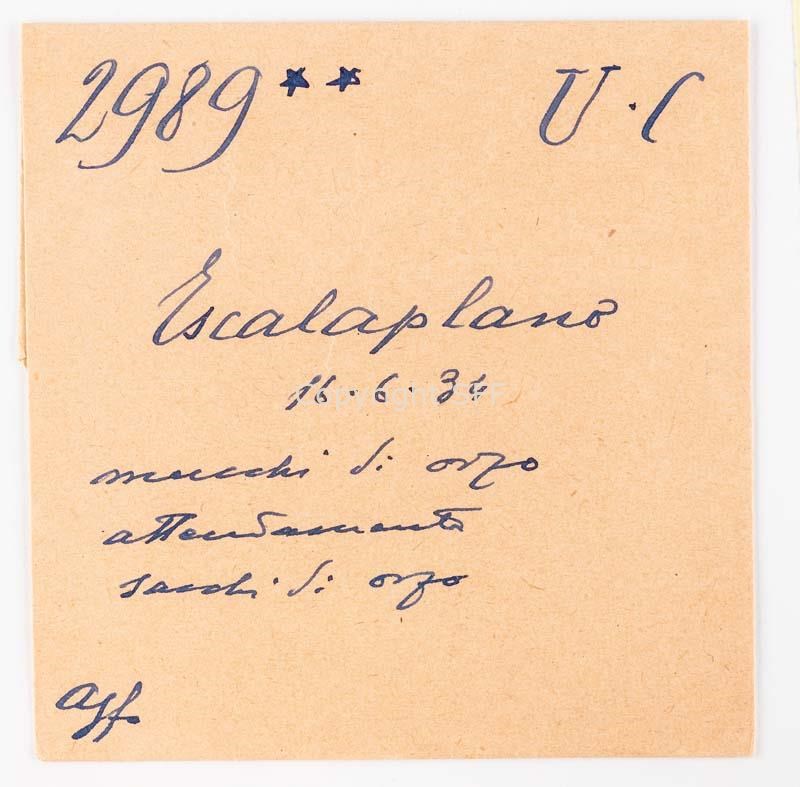 2989** U.C
Escalaplano
16.6.34
mucchi di orzo
attendamento
sacchi di orzo
Agf.